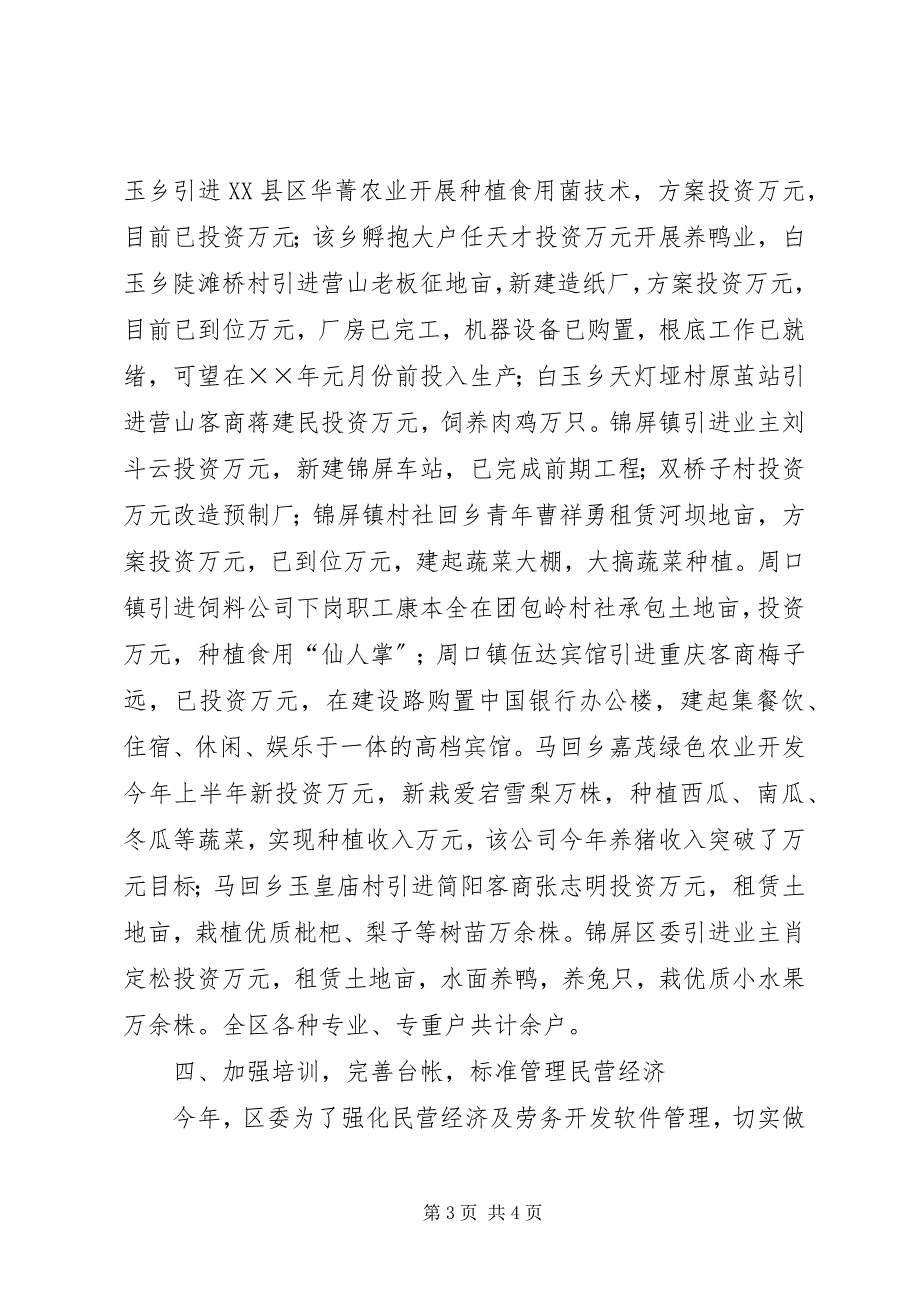 玉乡引进 XX 县区华菁农业开展种植食用菌技术，方案投资万元，
目前已投资万元；该乡孵抱大户任天才投资万元开展养鸭业，白
玉乡陡滩桥村引进营山老板征地亩，新建造纸厂，方案投资万元，
目前已到位万元，厂房已完工，机器设备已购置，根底工作已就
绪，可望在××年元月份前投入生产；白玉乡天灯垭村原茧站引
进营山客商蒋建民投资万元，饲养肉鸡万只。锦屏镇引进业主刘
斗云投资万元，新建锦屏车站，已完成前期工程；双桥子村投资
万元改造预制厂；锦屏镇村社回乡青年曹祥勇租赁河坝地亩，方
案投资万元，已到位万元，建起蔬菜大棚，大搞蔬菜种植。周口
镇引进饲料公司下岗职工康本全在团包岭村社承包土地亩，投资
万元，种植食用“仙人掌〞；周口镇伍达宾馆引进重庆客商梅子
远，已投资万元，在建设路购置中国银行办公楼，建起集餐饮、
住宿、休闲、娱乐于一体的高档宾馆。马回乡嘉茂绿色农业开发
今年上半年新投资万元，新栽爱宕雪梨万株，种植西瓜、南瓜、
冬瓜等蔬菜，实现种植收入万元，该公司今年养猪收入突破了万
元目标；马回乡玉皇庙村引进简阳客商张志明投资万元，租赁土
地亩，栽植优质枇杷、梨子等树苗万余株。锦屏区委引进业主肖
定松投资万元，租赁土地亩，水面养鸭，养兔只，栽优质小水果
万余株。全区各种专业、专重户共计余户。
四、加强培训，完善台帐，标准管理民营经济
今年，区委为了强化民营经济及劳务开发软件管理，切实做
第 3 页 共 4 页